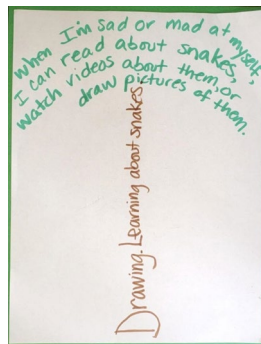 when I'm sad or mad at myself,
I can read about snakes,
watch videos about them, or
draw pictures of them.
Drawing. Learning about snakes